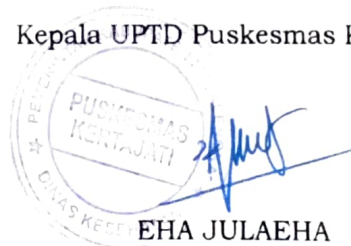 Kepala UPTD Puskesmas
PUSKESMAS
KERTAJATI
DINAS
EHA JULAEHA